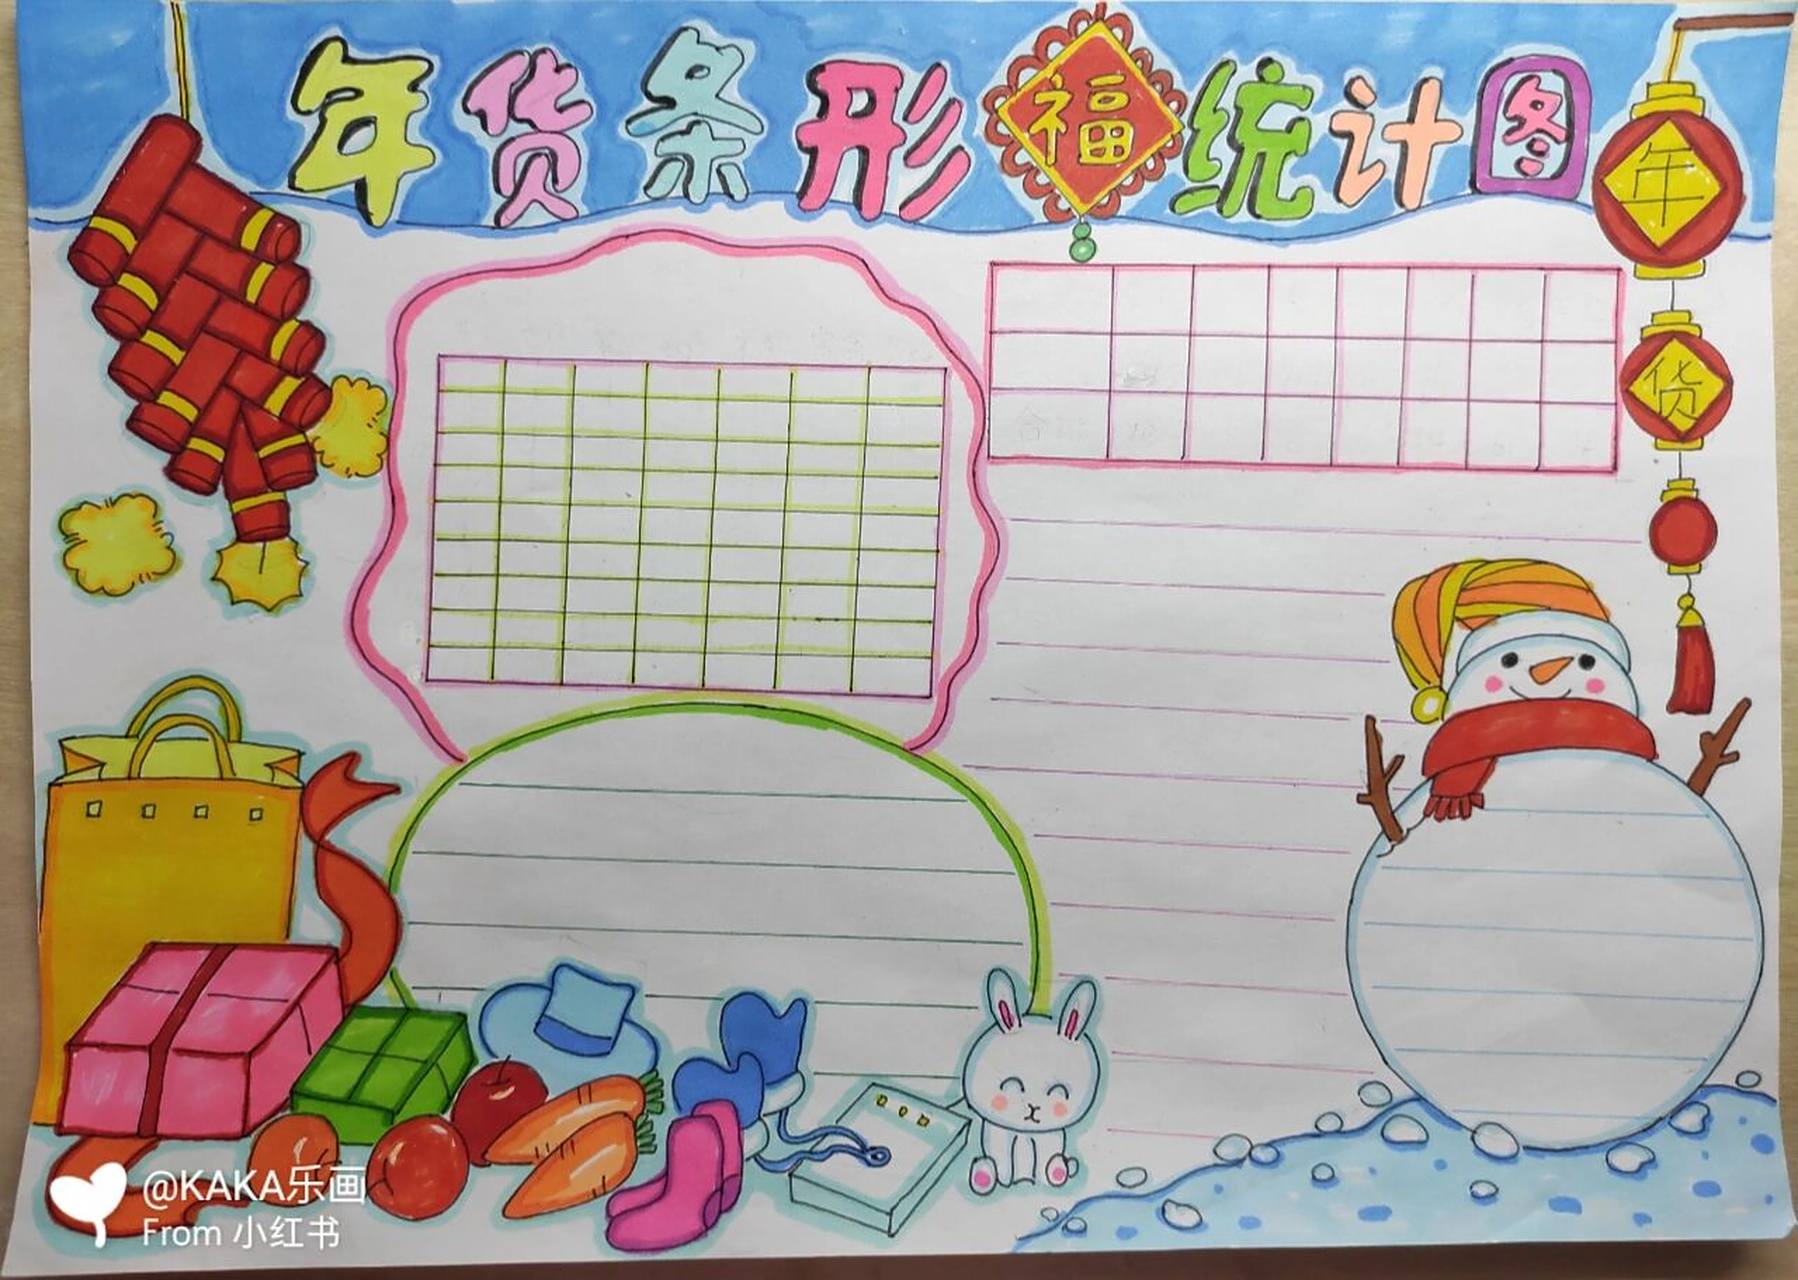 年货条形福统计图
年
货
@KAKA乐画
From 小红书